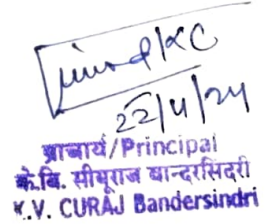 22/4/24
प्राचार्य/Principal
के.वि. सीयूराज बान्दरसिंदरी
K.V. CURAJ Bandersindri